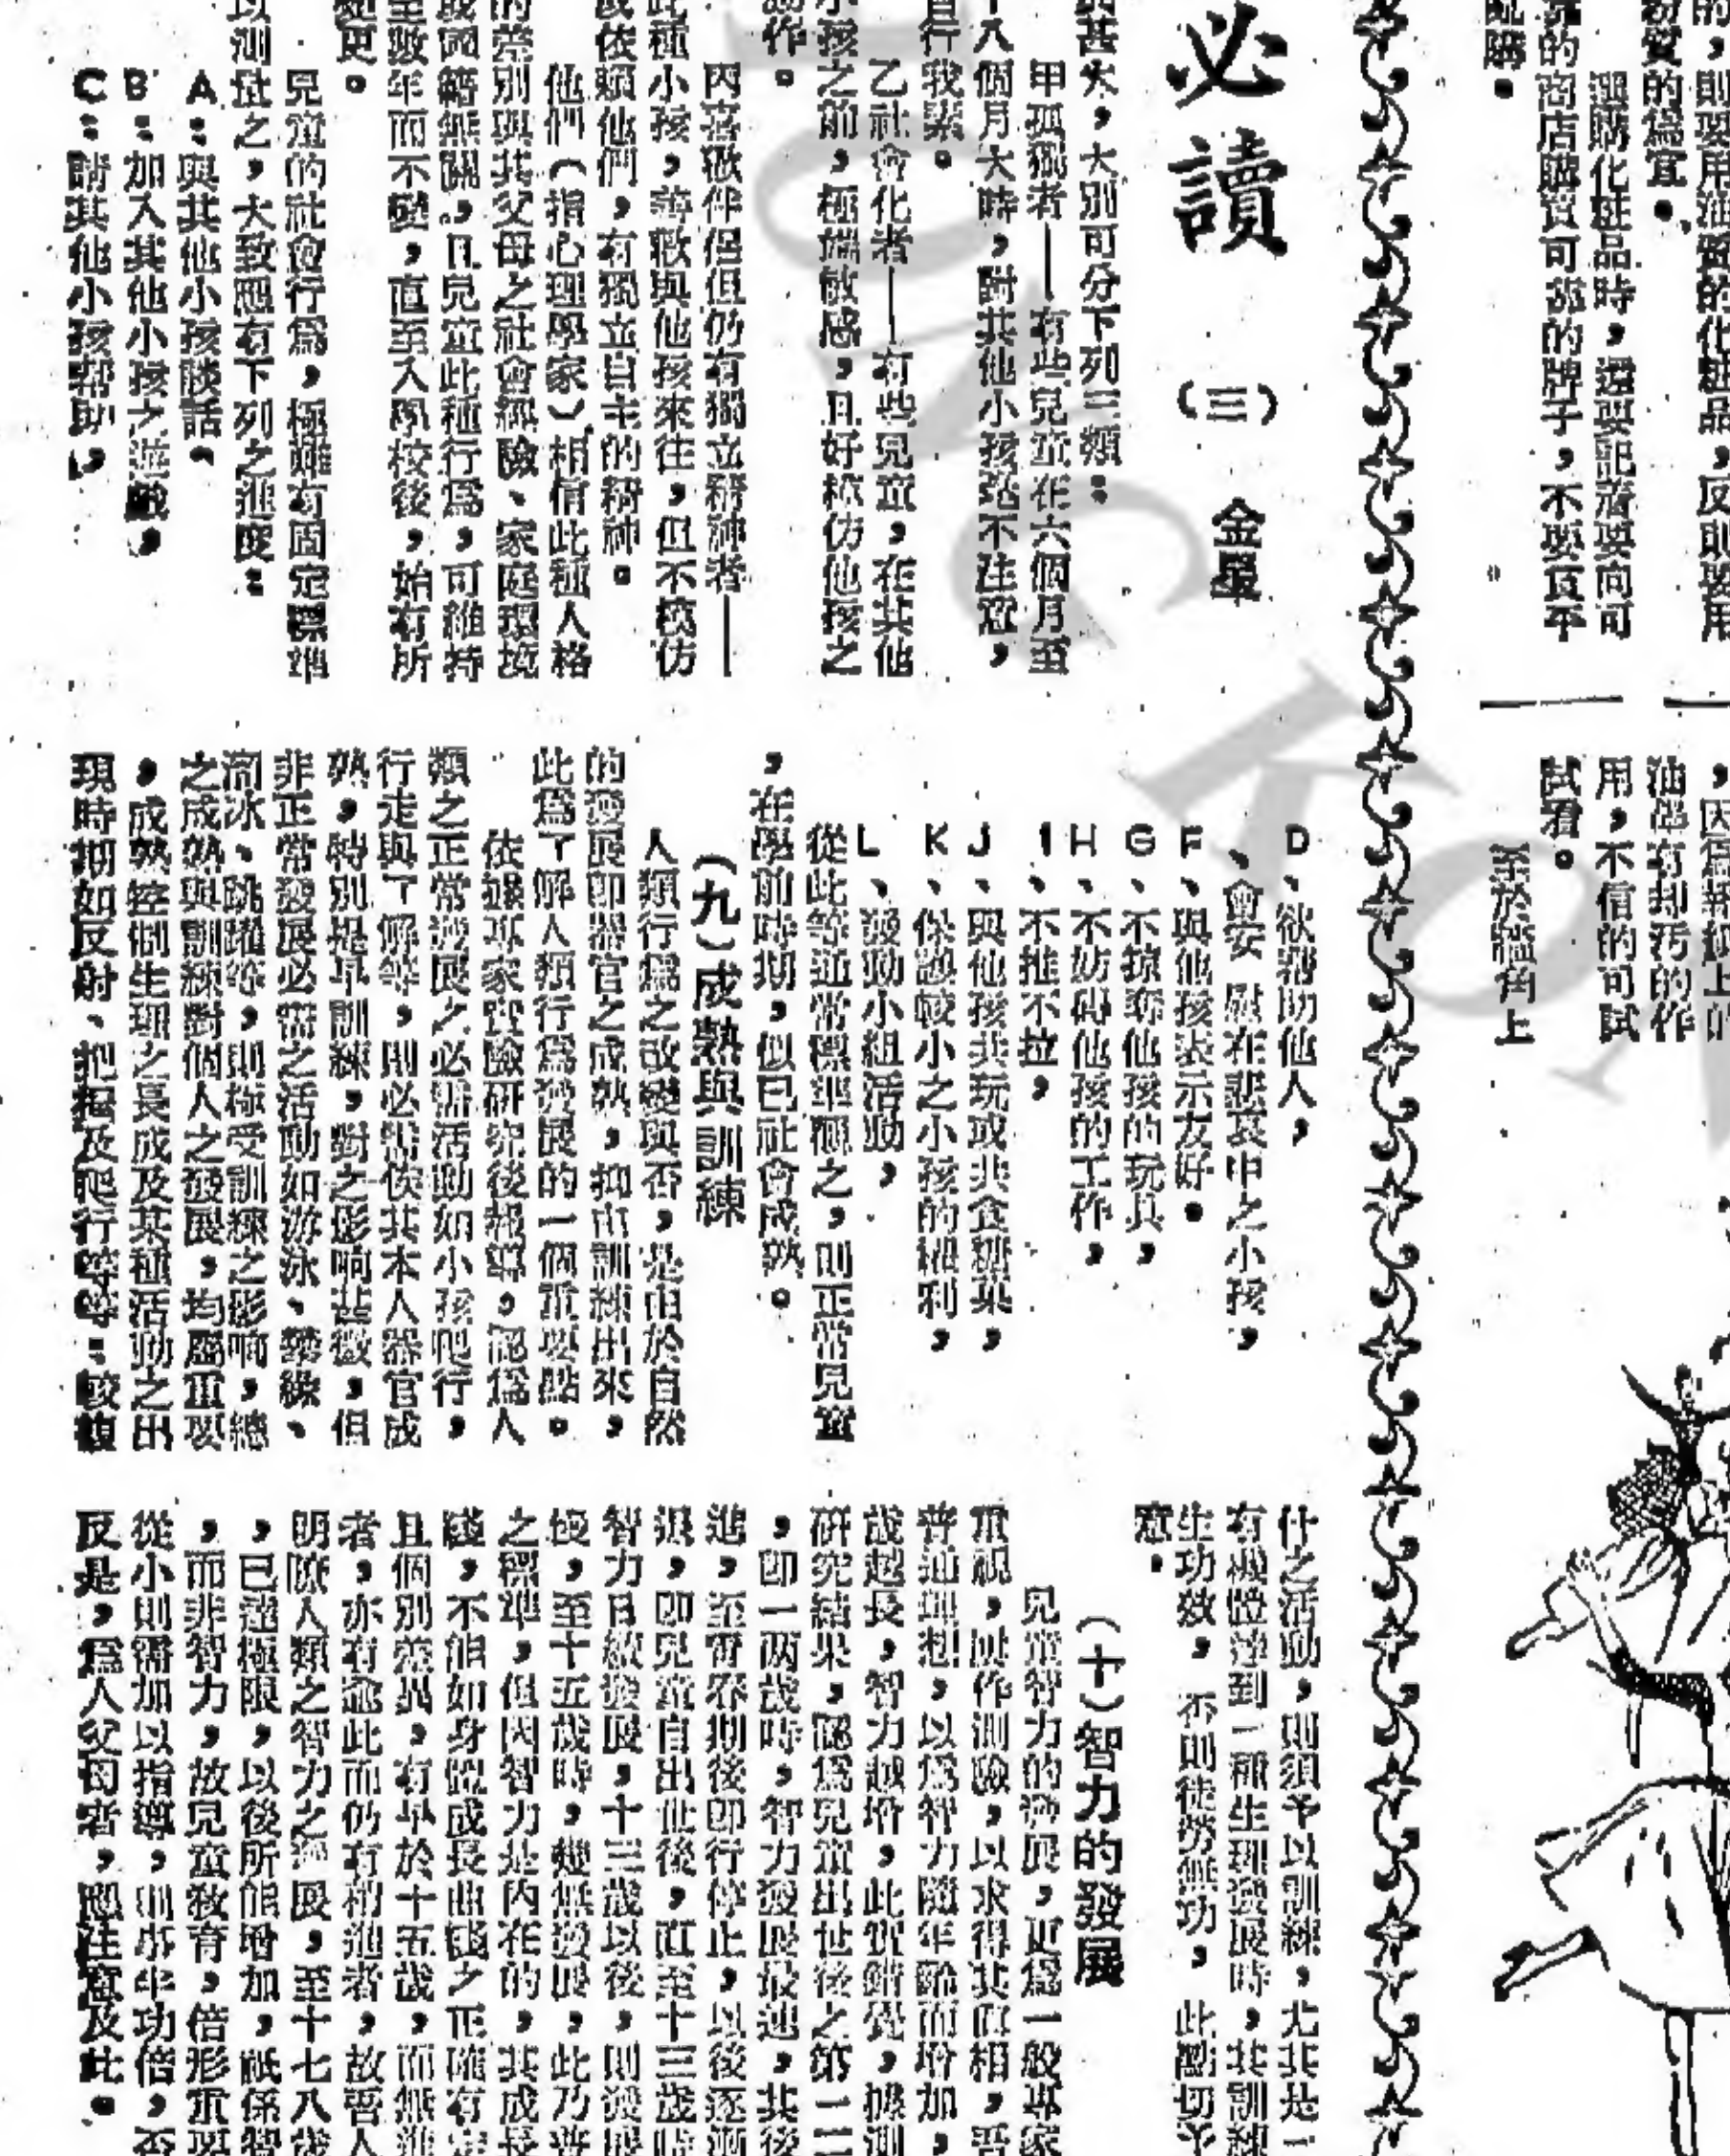 的，則要用油質的化粧品，反則要用
粉質的爲宜。
選購化粧品時，還要記着要向可
靠的商店購買可靠的牌子，不要貪平
亂購。
，因爲報紙上的
油墨有却污的作
用，不信的可試
試看。
至於牆角上
必讀
（三）
金星
甚大，大別可分下列三類：
甲孤獨者——有些兒童在六個月至
十八個月大時，對其他小孩毫不注意，
自行我素。
乙社會化者——有些兒童，在其他
小孩之前，極端敏感，且好模仿他孩之
動作。
丙喜歡伴侶但仍有獨立精神者——
此種小孩，喜歡與他孩來往，但不模仿
或依賴他們，有獨立自主的精神。
他們（指心理學家）相信此種人格
的差別與其父母之社會經驗、家庭環境
或國籍無關，且兒童此種行爲，可維持
至數年而不變，直至入學校後，始有所
變更。
兒童的社會行爲，極難有固定標準
以測量之，大致應有下列之進度：
A：與其他小孩談話。
B：加入其他小孩之遊戲，
C：請其他小孩幫助，
D、欲幫助他人，
、會安慰在悲哀中之小孩，
F、與他孩表示友好。
G、不掠奪他孩的玩具，
H、不妨碍他孩的工作，
I、不推不拉，
J、與他孩共玩或共食糖菓，
K、保護較小之小孩的權利，
L、發動小組活動，
從此等通常標準觀之，則正常兒童
，在學前時期，似已社會成熟。
（九）成熟與訓練
人類行爲之改變與否，是由於自然
的發展即器官之成熟，抑由訓練出來，
此爲了解人類行爲發展的一個重要點。
依據專家實驗研究後報導，認爲人
類之正常發展之必需活動如小孩爬行，
行走與了解等，則必需俟其本人器官成
熟，特別提早訓練，對之影响甚微，但
非正常發展必需之活動如游泳、攀緣、
溜冰、跳躍等，則極受訓練之影响，總
之成熟與訓練對個人之發展，均屬重要
，成熟控制生理之長成及某種活動之出
現時期如反射、把握及爬行等等：較複
什之活動，則須予以訓練，尤其是一
有機體達到一種生理發展時，其訓練
生功效，否則徒勞無功，此點切予
意。
（十）智力的發展
兒童智力的發展，更爲一般專家
重視，屢作測驗，以求得其眞相，吾
普通理想，以爲智力隨年齡而增加，
歲越長，智力越增，此實錯覺，據測
研究結果，認爲兒童出世後之第一二
，即一兩歲時，智力發展最速，其後
進，至靑春期後即行停止，以後逐漸
退，即兒童自出世後，直至十三歲時
智力日緻發展，十三歲以後，則發展
緩，至十五歲時，幾無發展，此乃普
之標準，但因智力是內在的，其成長
綫，不能如身體成長曲綫之正確有定
且個別差異，有早於十五歲，而無進
者，亦有逾此而仍有稍進者，故吾人
明瞭人類之智力之發展，至十七八歲
，已達極限，以後所能增加，祇係智
，而非智力，故兒童敎育，倍形重要
從小則需加以指導，則事半功倍，否
反是，爲人父母者，應注意及此。